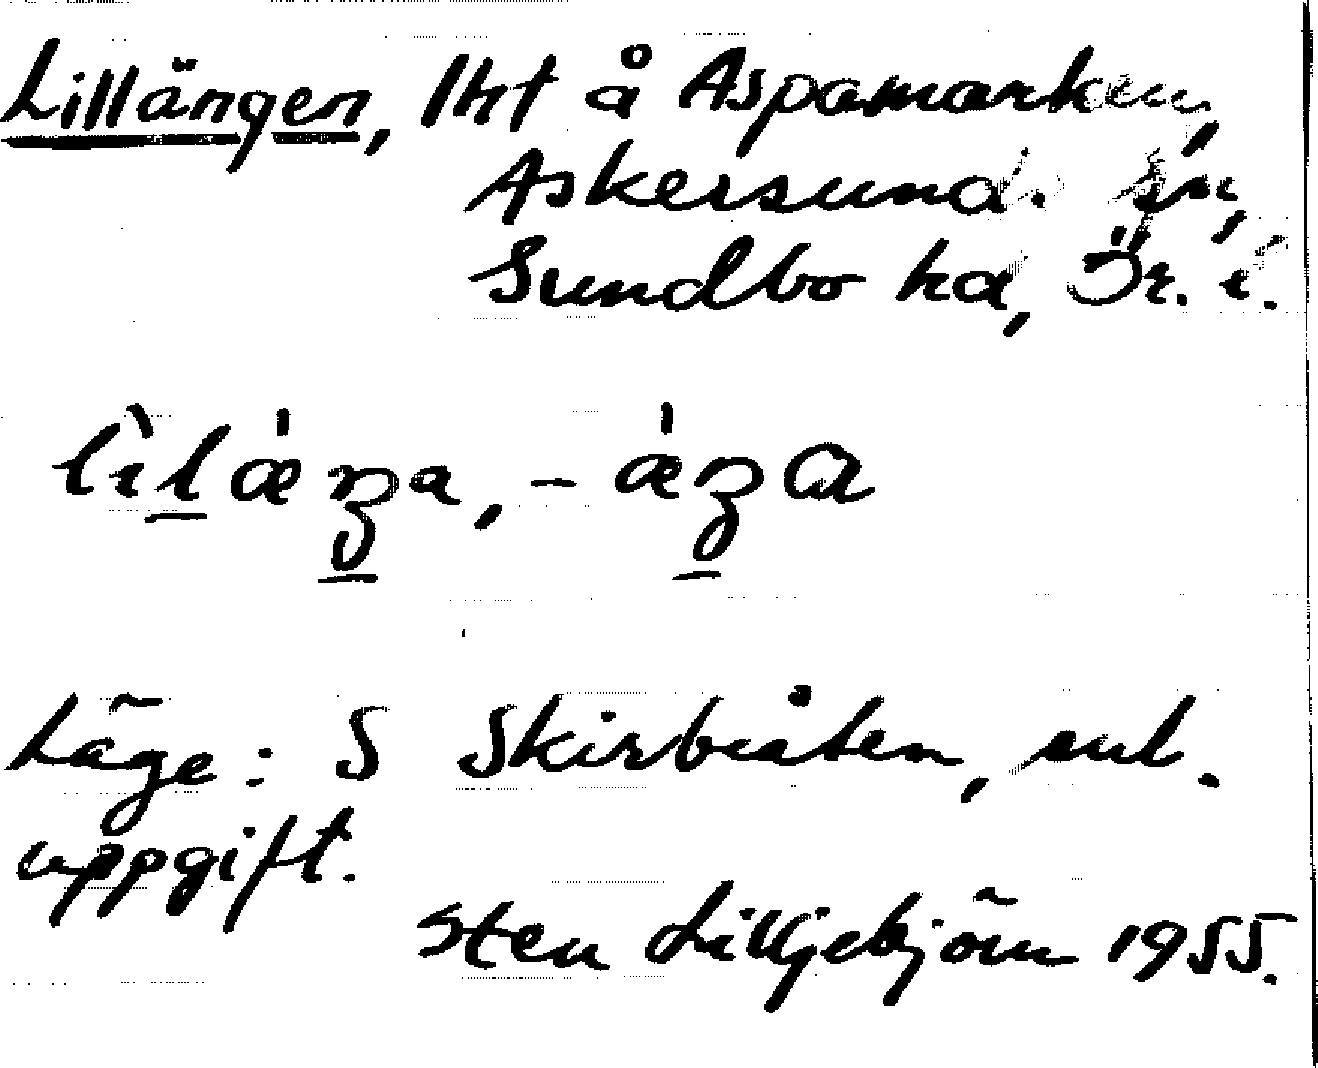 Lillängen, lht å Aspamarken,
Askersund. sn,
Sundbo hd, Ör. l.
Läge: S Skirbåten, enl.
uppgift.
Sten Lilljebjörn 1955.